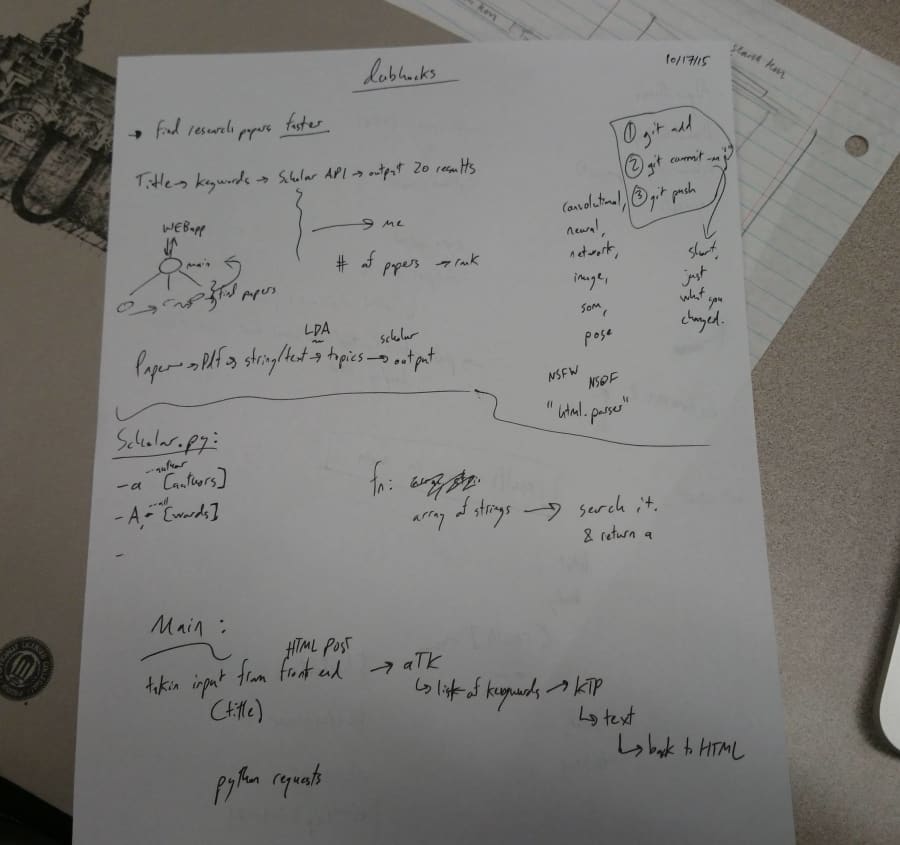 dubhacks
10/17/15
→ find research papers faster
Title → keywords → Scholar API → output 20 results
→ me
# of papers → rank
WEBapp
main
find papers
① git add
② git commit -m ""
③ git push
short,
just
what you
changed.
convolutional,
neural,
network,
image,
som,
pose
NSFW NSDF
"html.parser"
LDA scholar
Paper → Pdf → string/text → topics → output
Scholar.py:
--author
-a [authors]
--all
-A, - [words]
-
fn:
array of strings → serch it.
& return a
Main:
HTML POST
takin input from front end → aTK
(title)
↳ list of keywords → kTP
↳ text
↳ back to HTML
python requests